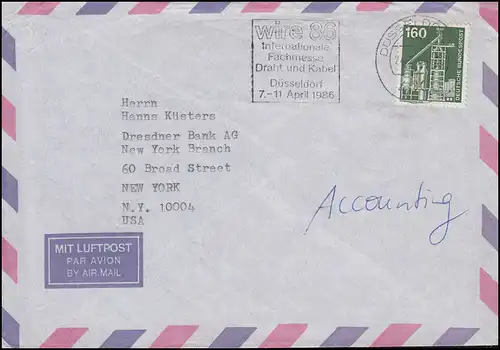 wire 86
Internationale
Fachmesse
Draht und Kabel
Düsseldorf
7.-11 April 1986
160
DEUTSCHE BUNDESPOST
Herrn
Hanns Küsters
Dresdner Bank AG
New York Branch
60 Broad Street
NEW YORK
N.Y. 10004
USA
Accounting
MIT LUFTPOST
PAR AVION
BY AIR MAIL